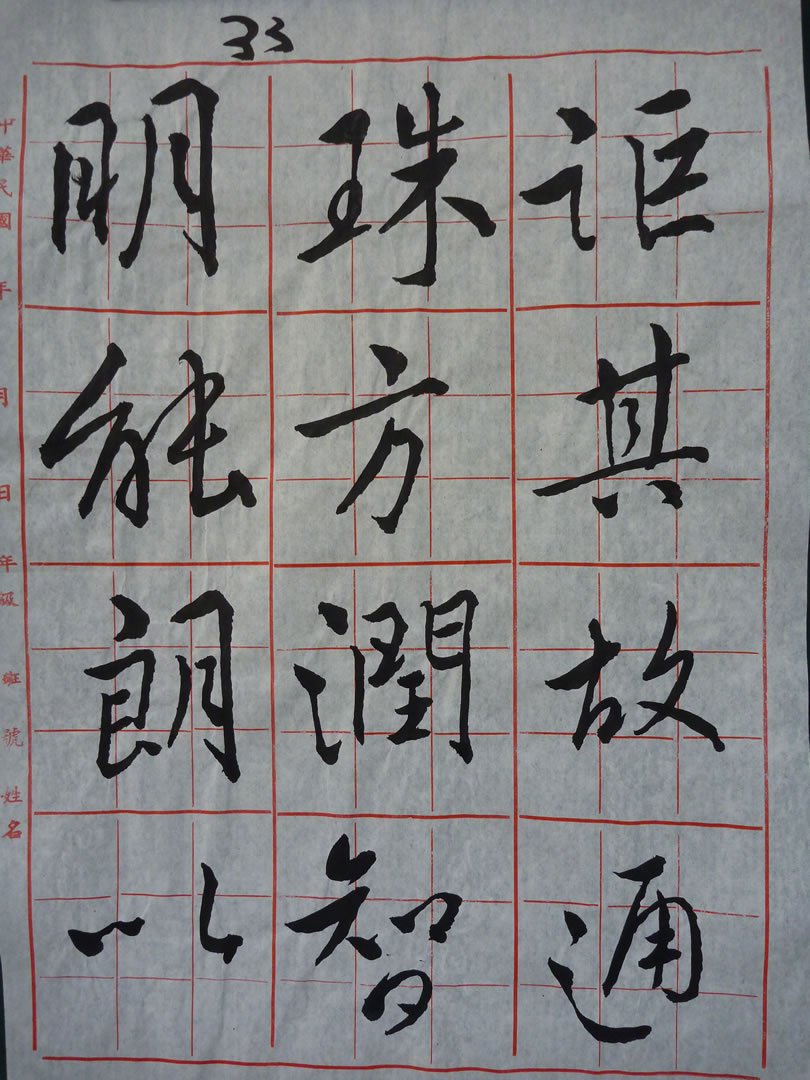 33
明珠詎
能方其
朗潤故
以智通
中華民國 年 月 日 年級 班 號 姓名